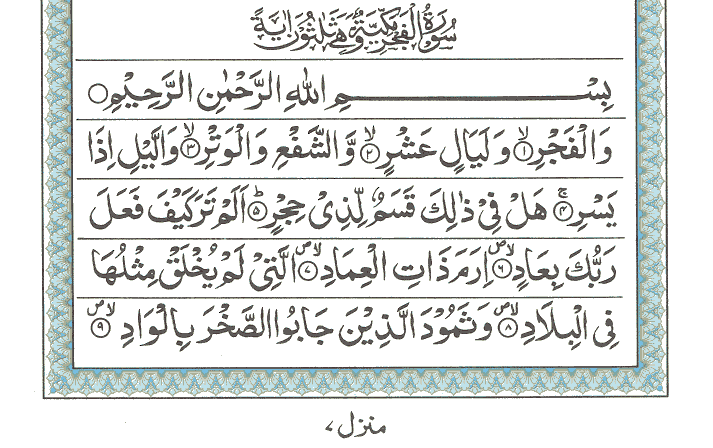 سُوْرَةُ الْفَجْرِ مَكِّيَّةٌ وَّهِيَ ثَلٰثُوْنَ اٰيَةً
بِسْمِ اللّٰهِ الرَّحْمٰنِ الرَّحِيْمِ ○
وَالْفَجْرِ ۙ﴿۱﴾ وَلَيَالٍ عَشْرٍ ۙ﴿۲﴾ وَّالشَّفْعِ وَالْوَتْرِ ۙ﴿۳﴾ وَالَّيْلِ اِذَا
يَسْرِ ۚ﴿۴﴾ هَلْ فِیْ ذٰلِكَ قَسَمٌ لِّذِیْ حِجْرٍ ؕ﴿۵﴾ اَلَمْ تَرَ كَيْفَ فَعَلَ
رَبُّكَ بِعَادٍ ۪ۙ﴿۶﴾ اِرَمَ ذَاتِ الْعِمَادِ ۪ۙ﴿۷﴾ الَّتِیْ لَمْ يُخْلَقْ مِثْلُهَا
فِی الْبِلَادِ ۪ۙ﴿۸﴾ وَثَمُوْدَ الَّذِيْنَ جَابُوا الصَّخْرَ بِالْوَادِ ۪ۙ﴿۹﴾
منزل ۷